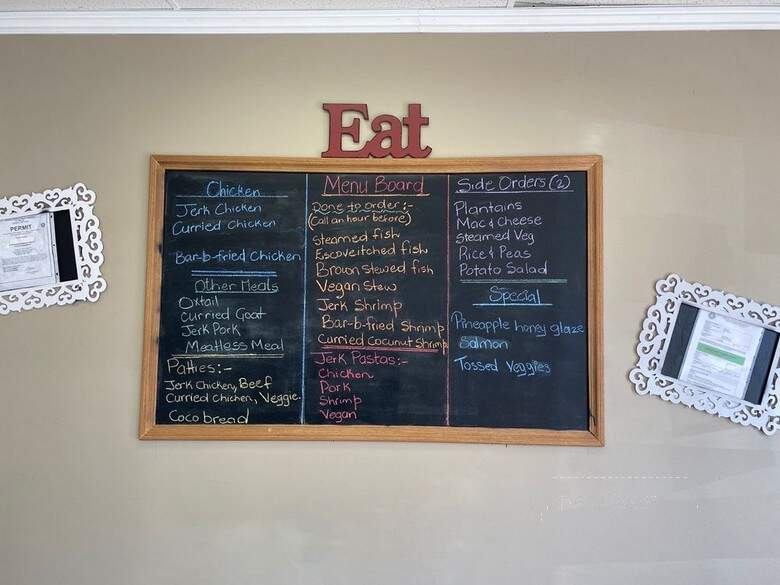 Eat
PERMIT
Chicken
Jerk Chicken
Curried Chicken
Bar-b-fried Chicken
Other Meals
Oxtail
Curried Goat
Jerk Pork
Meatless Meal
Patties:-
Jerk Chicken, Beef
Curried Chicken, Veggie
Coco bread
Menu Board
Done to order:-
(Call an hour before)
Steamed fish
Escoveitched fish
Brown Stewed fish
Vegan Stew
Jerk Shrimp
Bar-b-fried Shrimp
Curried Coconut Shrimp
Jerk Pastas:-
Chicken
Pork
Shrimp
Vegan
Side Orders (2)
Plantains
Mac & Cheese
Steamed Veg
Rice & Peas
Potato Salad
Special
Pineapple honey glaze
Salmon
Tossed Veggies